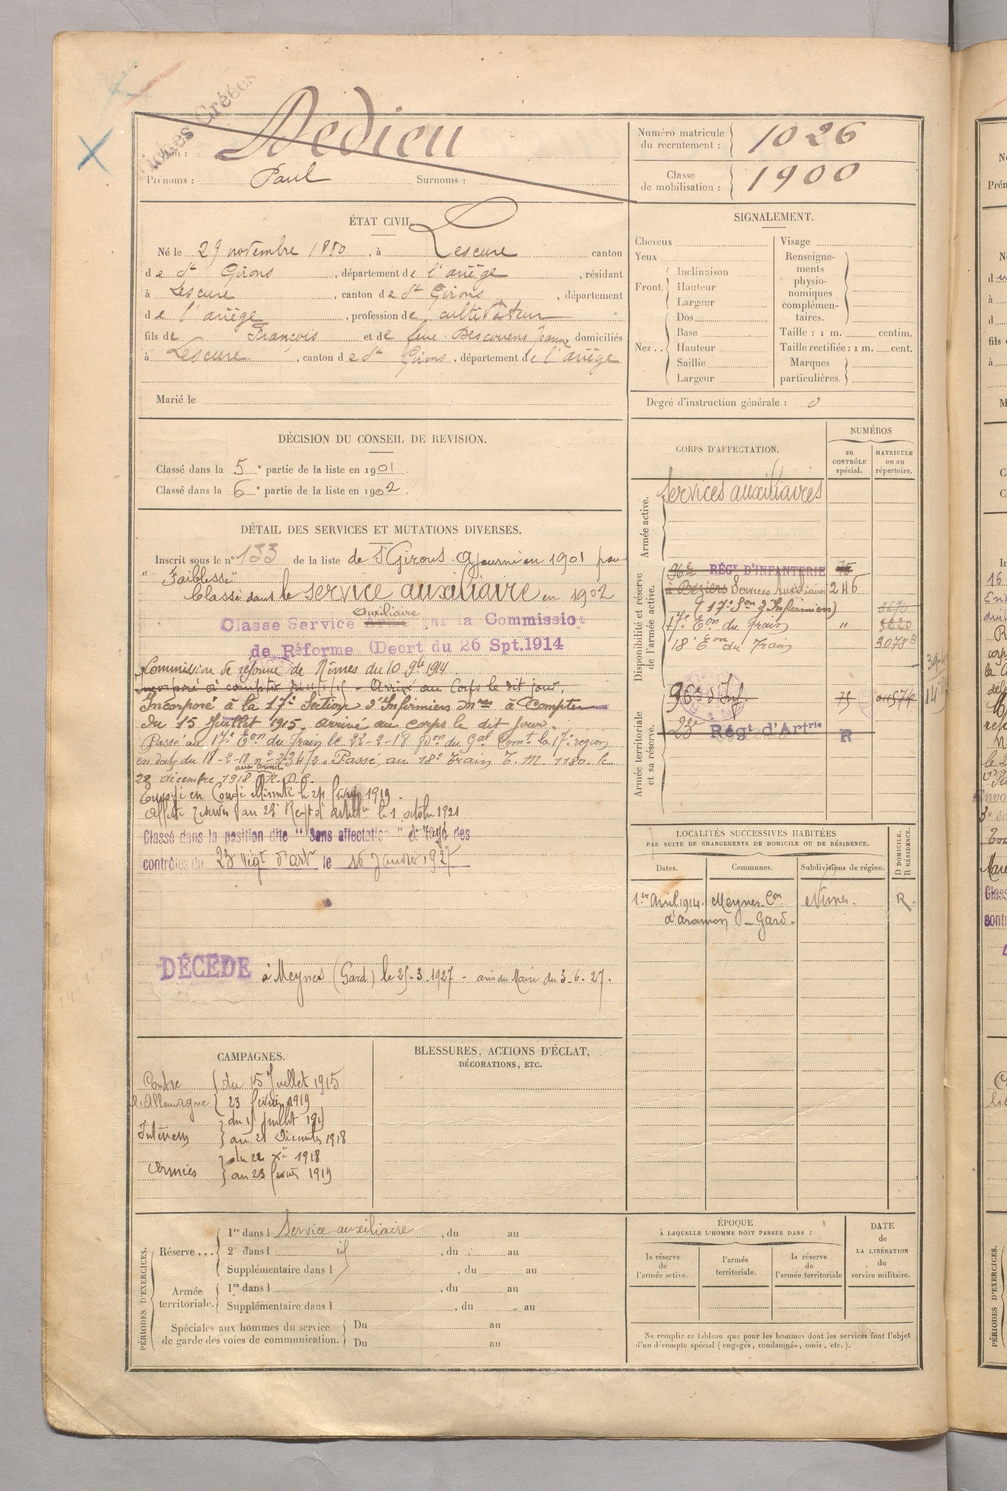 Fiches Créées
Nom : Dedieu
Prénoms : Paul Surnoms :
Numéro matricule du recrutement : 1026
Classe de mobilisation : 1900
ÉTAT CIVIL.
Né le 29 novembre 1880, à Lescure canton
de St Girons, département de l'ariège, résidant
à Lescure, canton de St Girons, département
de l'ariège, profession de cultivateur
fils de François et de feue Descouens Jeanne domiciliés
à Lescure, canton de St Girons, département de l'ariège
Marié le
DÉCISION DU CONSEIL DE REVISION.
Classé dans la 5e partie de la liste en 1901.
Classé dans la 6e partie de la liste en 1902.
DÉTAIL DES SERVICES ET MUTATIONS DIVERSES.
Inscrit sous le n° 133 de la liste de St Girons. Ajourné en 1901 pour
"Faiblesse"
Classé dans le service auxiliaire en 1902
Auxiliaire
Classe Service par la Commission
de Réforme (Décrt du 26 Spt.1914
Commission de réforme de Nîmes du 10 9bre 1914.
Arrivé au Corps le dit jour,
Incorporé à la 17e Section d'Infirmiers Mres à compter
du 15 Juillet 1915, arrivé au corps le dit jour
Passé au 17e Eon du Train le 22-2-18 Don du Gal Comt la 17e région
en date du 18-2-18 Passé au 18e Train T. M 1180. le
aux armées
22 décembre 1918
Envoyé en Congé illimité le 24 février 1919.
Affecté réserve au 23e Regt d'artie le 1 octobre 1921
Classé dans la position dite "Sans affectation" et rayé des
contrôles du 23 régt d'artie le 16 Janvier 1927
DÉCÉDÉ à Meynes (Gard) le 25-3-1927 - avis du Maire du 3-6-27.
CAMPAGNES.
Contre l'Allemagne du 15 Juillet 1915
23 février 1919
Intérieur du 15 Juillet 1915
au 21 Décembre 1918
Armées du 22 Xbre 1918
au 23 février 1919
BLESSURES, ACTIONS D'ÉCLAT,
DÉCORATIONS, ETC.
SIGNALEMENT.
Cheveux
Yeux
Front. Inclinaison
Hauteur
Largeur
Nez.. Dos
Base
Hauteur
Saillie
Largeur
Visage
Renseignements physionomiques complémentaires.
Taille : 1 m. centim.
Taille rectifiée : 1 m. cent.
Marques particulières.
Degré d'instruction générale : 0
CORPS D'AFFECTATION.
NUMÉROS
au CONTRÔLE spécial.
MATRICULE ou au répertoire.
Armée active.
Services auxiliaires
Disponibilité et réserve de l'armée active.
96e RÉGt D'INFANTERIE 75
à Béziers Services Auxiliaires 246
(17e Son d'Infirmiers)
17e Eon du Train " 5620
18e Eon du Train 3078B
Armée territoriale et sa réserve.
96e d'Inf 75
23e Régt d'Artrie R
LOCALITÉS SUCCESSIVES HABITÉES
PAR SUITE DE CHANGEMENTS DE DOMICILE OU DE RÉSIDENCE.
Dates. Communes. Subdivisions de région. D DOMICILE. R RÉSIDENCE.
1er Avril 1914. Meynes. Con d'Aramon - Gard. Nîmes. R.
PÉRIODES D'EXERCICES.
Réserve... 1re dans l Service auxiliaire, du au
2e dans l id, du au
Supplémentaire dans l, du au
Armée territoriale. 1re dans l, du au
Supplémentaire dans l, du au
Spéciales aux hommes du service de garde des voies de communication. Du au
Du au
ÉPOQUE
À LAQUELLE L'HOMME DOIT PASSER DANS :
la réserve de l'armée active.
l'armée territoriale.
la réserve de l'armée territoriale
DATE
de
LA LIBÉRATION
du
service militaire.
Ne remplir ce tableau que pour les hommes dont les services font l'objet
d'un décompte spécial (engagés, condamnés, omis, etc.).